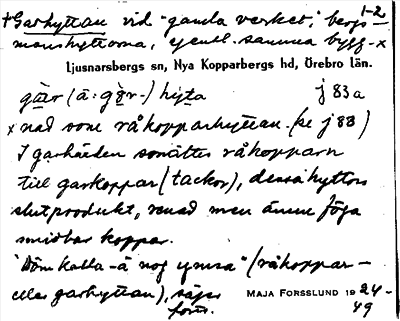 + Garhyttan vid "gamla verket", bergs- 1-2
manshyttorna, egentl. samma bygg- x
Ljusnarsbergs sn, Nya Kopparbergs hd, Örebro län.
gār (ā: gōr-) hyta j 83a
x nad som råkopparhyttan (se j 83)
I garhärden smältes råkopparn
till garkoppar (tackor), dessa hyttors
slutprodukt, renad men ännu föga
smidbar koppar.
"Döm kalla -ā nog ymsa" (råkoppar-
eller garhyttan), säger
MAJA FORSSLUND 1924-
49